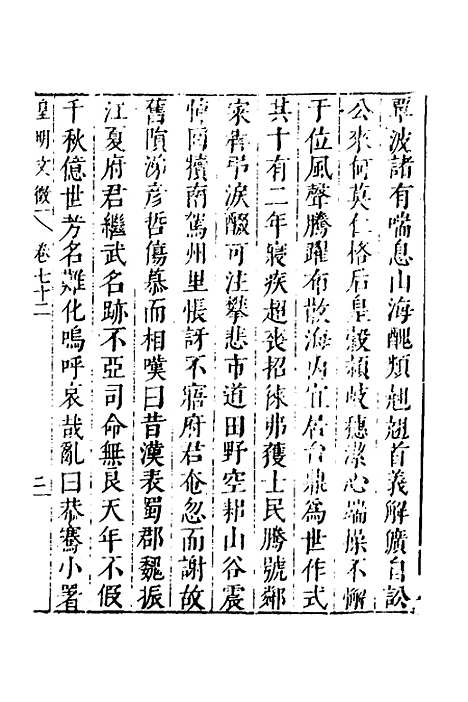 覃波諸有喘息山海醜類翹翹首義解曠自訟
公來何莫仁格后皇穀穎岐穗潔心端操不懈
于位風聲騰躍布散海內宜居台鼎為世作式
其十有二年寢疾超丧招徠弗獲士民騰號鄰
家耆弔淚醊可注攀悲市道田野空耕山谷震
悼因犢南駕州里悵訝不寤府君奄忽而謝故
舊隕涕彥哲傷慕而相嘆曰昔漢表蜀郡魏振
江夏府君繼武名跡不亞司命無良天年不假
千秋億世芳名難化嗚呼哀哉亂曰恭騫小署
皇明文徵 卷七十二 二